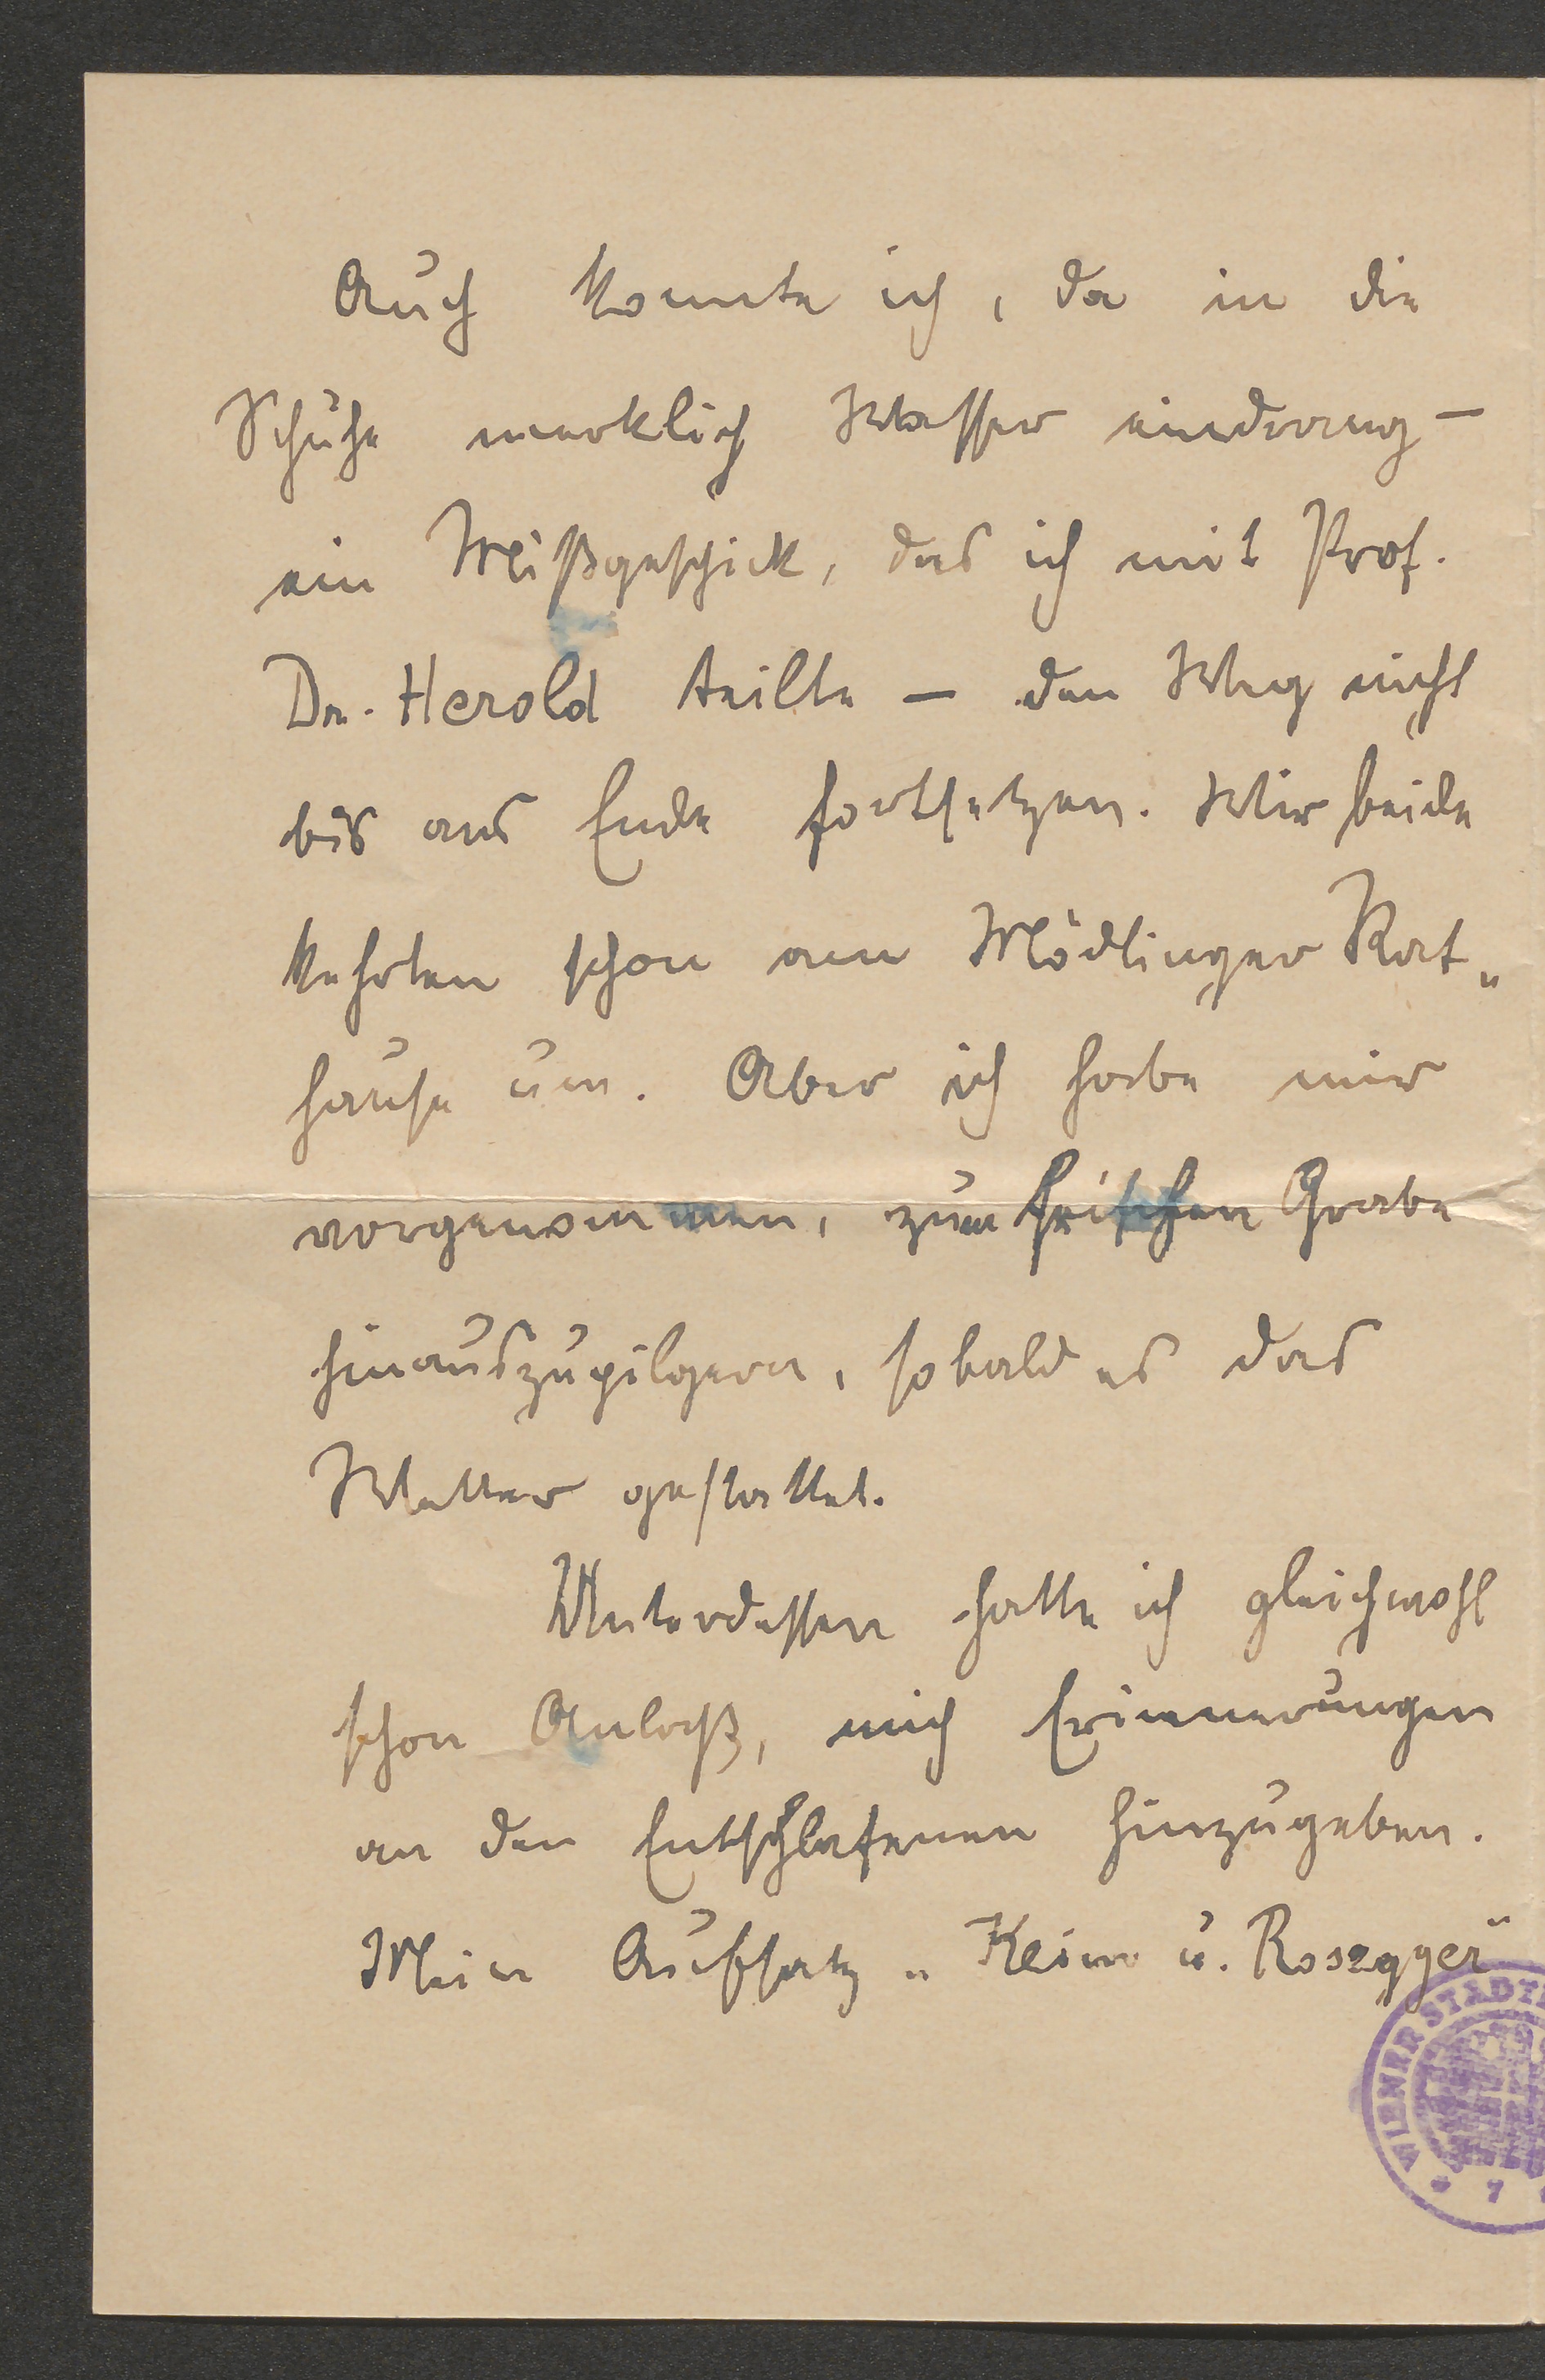 Auch konnte ich, da in die
Schuhe merklich Wasser eindrang –
ein Mißgeschick, das ich mit Prof.
Dr. Herold teilte – den Weg nicht
bis ans Ende fortsetzen. Wir beide
kehrten schon am Mödlinger Rat„
hause um. Aber ich habe mir
vorgenommen, zum frischen Grabe
hinauszupilgern, sobald es das
Wetter gestattet.
Unterdessen hatte ich gleichwohl
schon Anlaß, mich Erinnerungen
an den Entschlafenen hinzugeben.
Mein Aufsatz „Keim u. Rosegger“
WIENER STADT
7